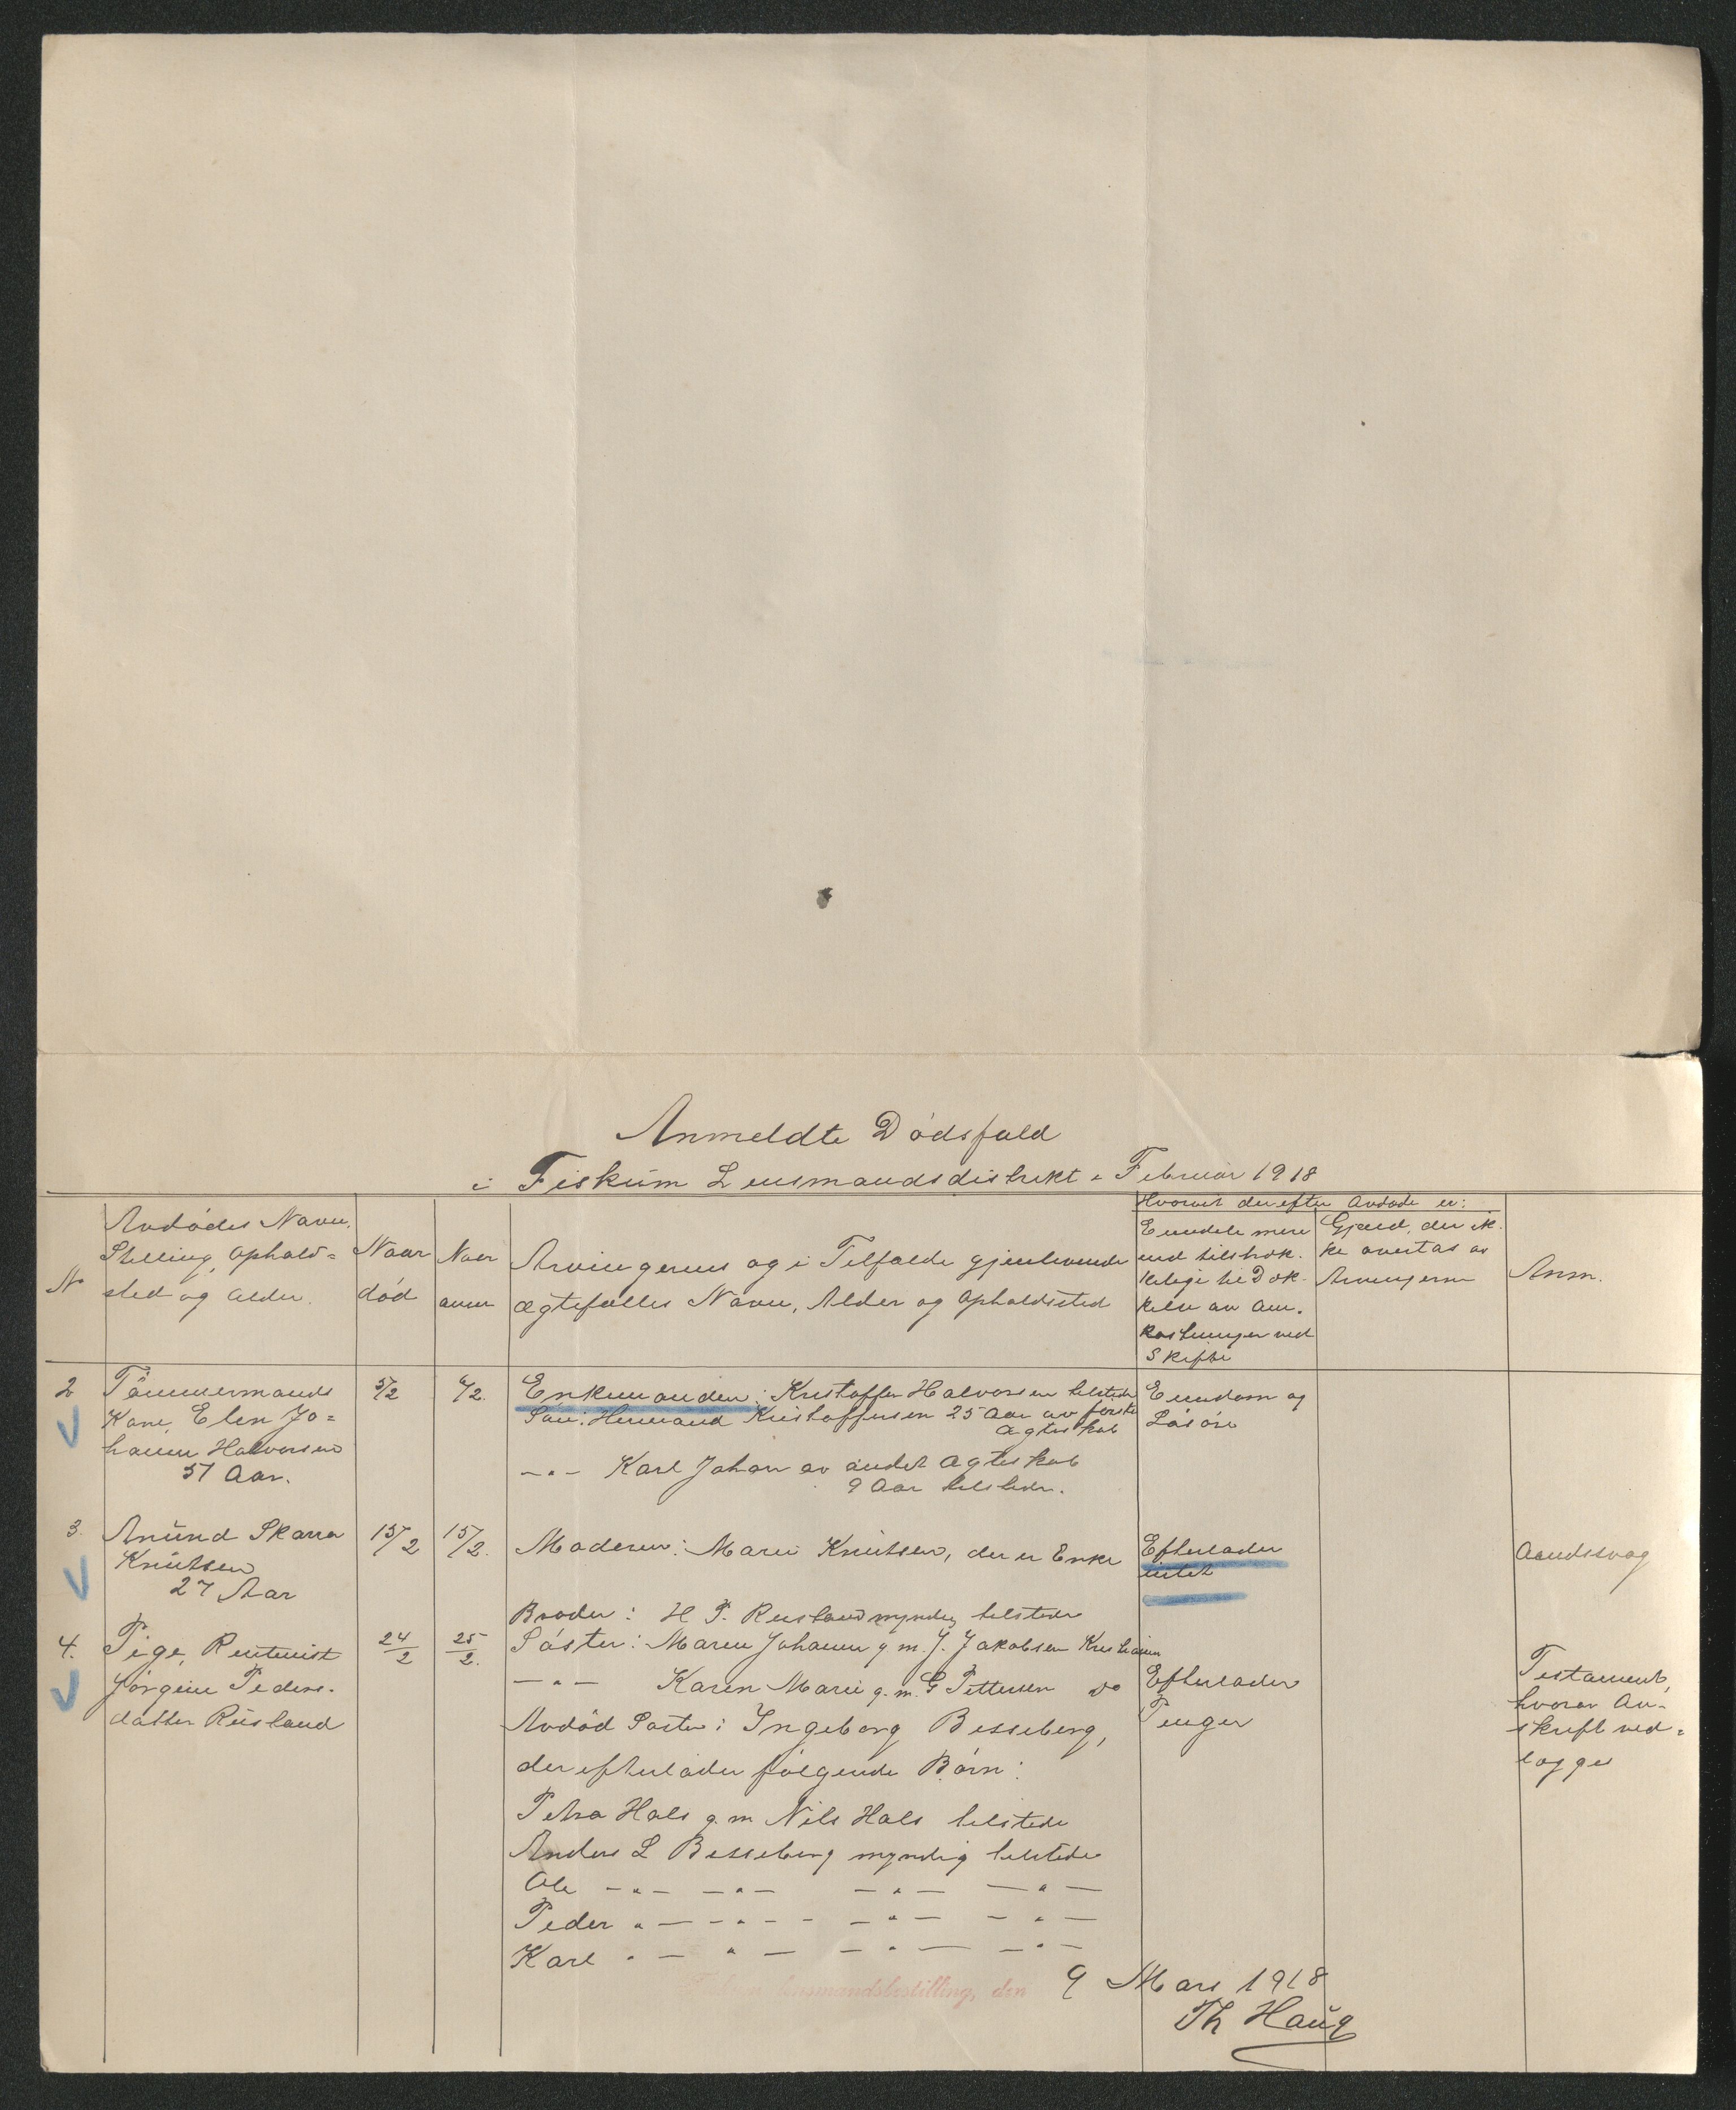 Anmeldte Dødsfald
i Fiskum Lensmandsdistrikt i Februar 1918
No
Avdødes Navn,
Stilling, Ophold=
sted og Alder.
Naar
død
Naar
anm
Arvingernes og i Tilfælde gjenlevende
Ægtefælles Navn, Alder og Opholdssted
Hvorvidt der efter Avdøde er:
Eiendele mere
end tilstræk-
kelige til Dæk-
kelse av Om-
kostninger ved
Skifte
Gjæld, der ik-
ke overtas av
Arvingerne
Anm.
2
Tømmermands
Kone, Elen Jo=
hanne Halvorsen
51 Aar.
5/2
6/2.
Enkemanden: Kristoffer Halvorsen tilstede
Søn: Hermand Kristoffersen 25 Aar av første
Ægteskab
-"- Karl Johan av andet Ægteskab
9 Aar tilstede.
Eiendom og
Løsøre
3.
Anund Skarra
Knutsen
27 Aar
15/2
15/2.
Moderen: Maren Knutsen, der er Enke
Efterlader
intet
Aandssvag
4.
Pige, Rentenist
Jørgine Peders-
datter Rusland
24/2
25/2.
Broder: H P. Rusland myndig tilstede
Søster: Maren Johanne g. m. J. Jakobsen Kristiania
-"- Karen Marie g. m. G Pettersen Do
Avdød Søster: Ingeborg Besseberg,
der efterlader følgende Børn:
Petra Hals g. m Nils Hals tilstede
Anders L Besseberg myndig tilstede
Ole -"- -"- -"- -"-
Peder "- -"- -"- -"-
Karl "- "- -"- -"-
Efterlader
Penger
Testament,
hvorav Av-
skrift ved=
lægges
Fiskum lensmandsbestilling, den 9 Mars 1918
Th Haug